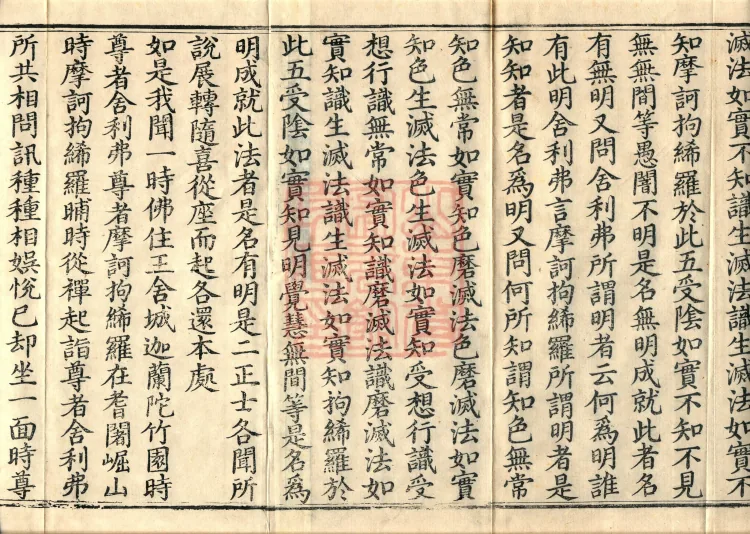 滅法如實不知識生滅法識生滅法如實不
知摩訶拘絺羅於此五受陰如實不知不見
無無間等愚闇不明是名無明成就此者名
有無明又問舍利弗所謂明者云何為明誰
有此明舍利弗言摩訶拘絺羅所謂明者是
知知者是名爲明又問何所知謂知色無常
知色無常如實知色磨滅法色磨滅法如實
知色生滅法色生滅法如實知受想行識受
想行識無常如實知識磨滅法識磨滅法如
實知識生滅法識生滅法如實知拘絺羅於
此五受陰如實知見明覺慧無間等是名爲
明成就此法者是名有明是二正士各聞所
說展轉隨喜從座而起各還本處
如是我聞一時佛住王舍城迦蘭陀竹園時
尊者舍利弗尊者摩訶拘絺羅在耆闍崛山
時摩訶拘絺羅晡時從禪起詣尊者舍利弗
所共相問訊種種相娛悅已却坐一面時尊